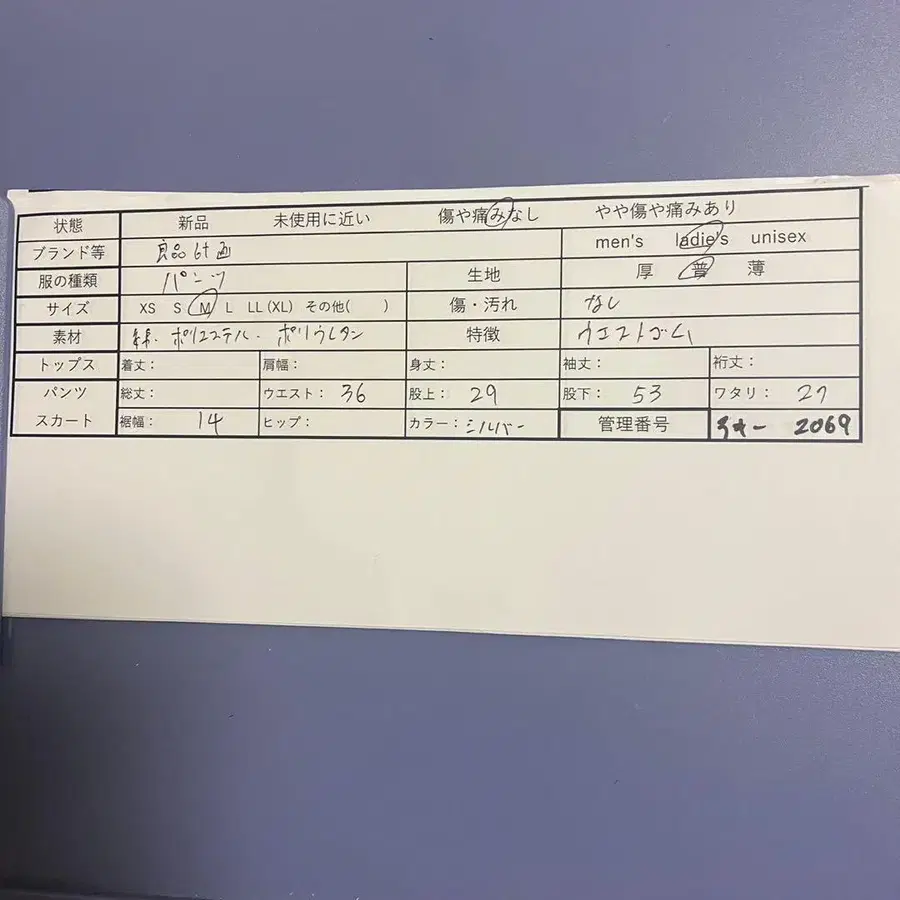 状態 新品 未使用に近い 傷や痛みなし やや傷や痛みあり
ブランド等 良品計画 men's ladie's unisex
服の種類 パンツ 生地 厚 普 薄
サイズ XS S M L LL (XL) その他( ) 傷・汚れ なし
素材 綿・ポリエステル・ポリウレタン 特徴 ウエストゴム
トップス 着丈: 肩幅: 身丈: 袖丈: 裄丈:
パンツ 総丈: ウエスト: 36 股上: 29 股下: 53 ワタリ: 27
スカート 裾幅: 14 ヒップ: カラー: シルバー 管理番号 2069